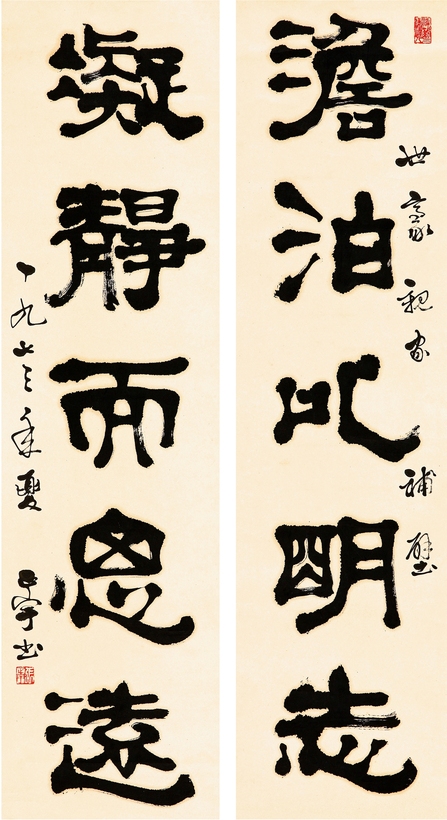 世豪親家 補壁
澹泊以明志
凝靜而思遠
一九七三年夏 正宇书